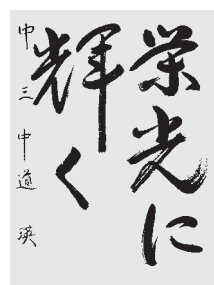 栄光に
輝く
中三 中道 瑛